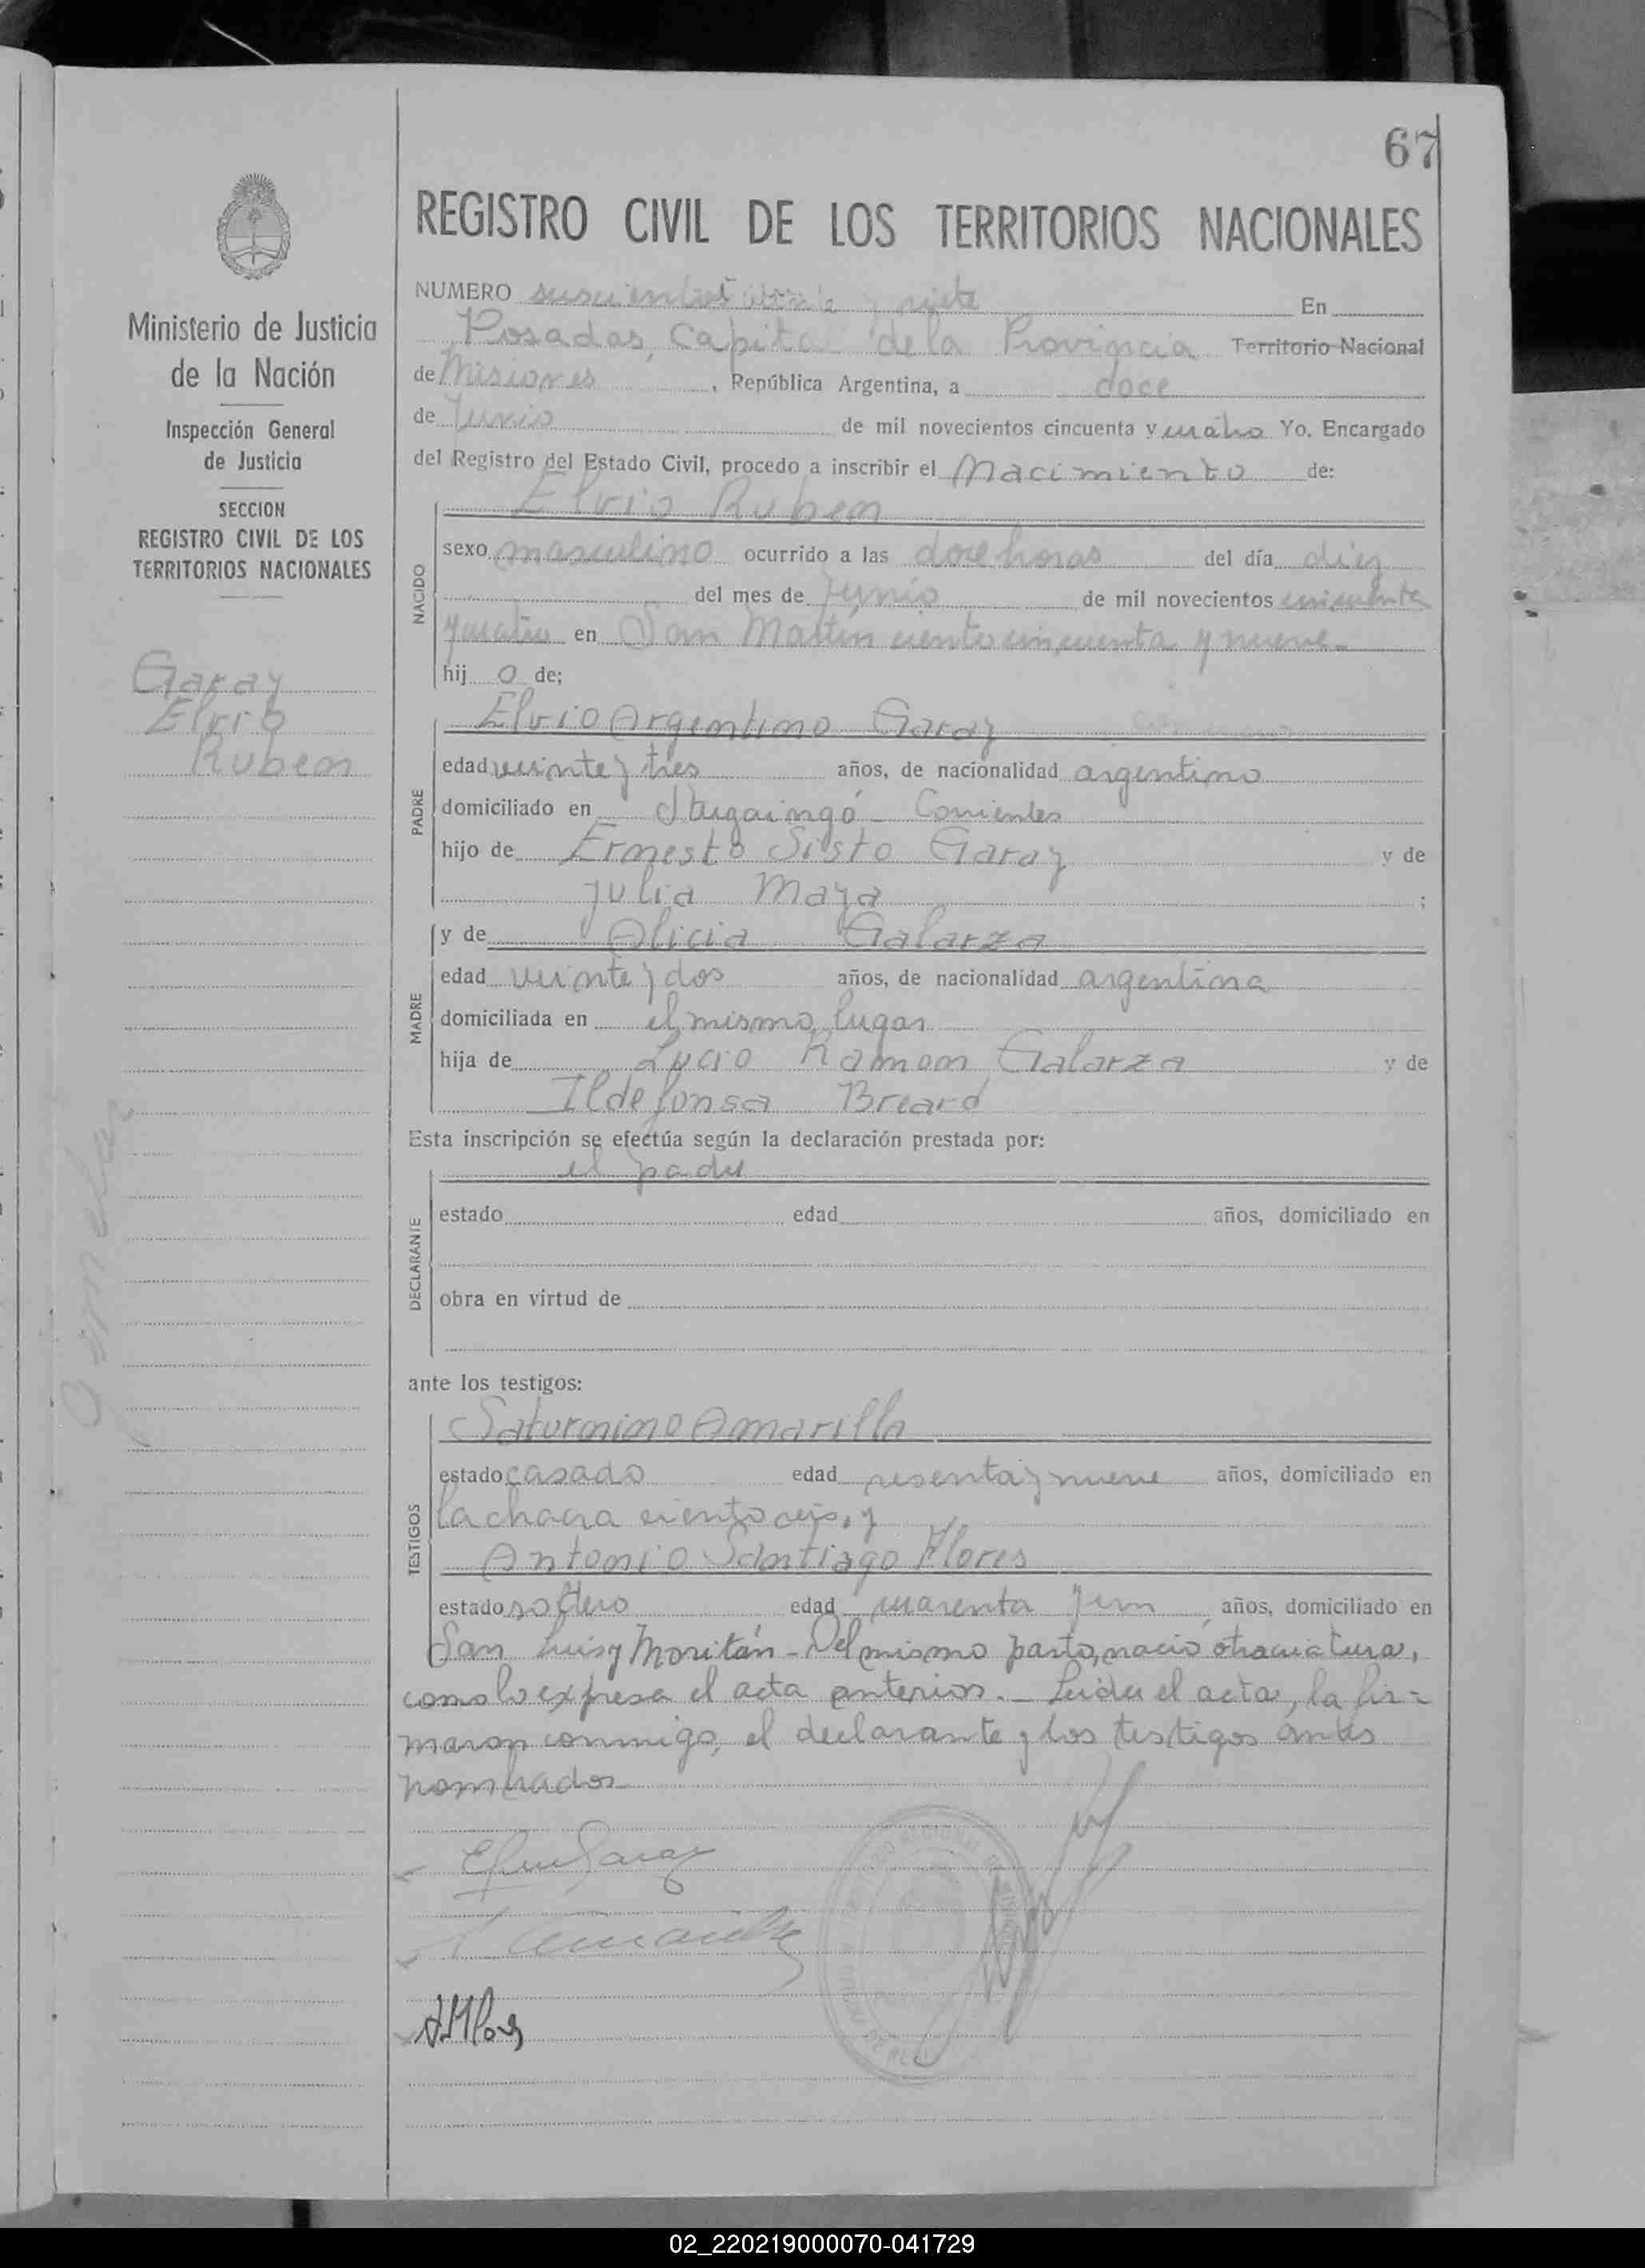 67
REGISTRO CIVIL DE LOS TERRITORIOS NACIONALES
Ministerio de Justicia
de la Nación
Inspección General
de Justicia
SECCION
REGISTRO CIVIL DE LOS
TERRITORIOS NACIONALES
Garay
Elvio
Ruben
Gemelar
NUMERO y siete En
Posadas, Capital de la Provincia Territorio Nacional
de Misiones, República Argentina, a doce
de Junio de mil novecientos cincuenta y cuatro Yo, Encargado
del Registro del Estado Civil, procedo a inscribir el Nacimiento de:
NACIDO
Elvio Ruben
sexo masculino ocurrido a las doce horas del día diez
del mes de Junio de mil novecientos cincuenta
y cuatro en San Martín ciento cincuenta y nueve -
hij o de;
PADRE
Elvio Argentino Garay
edad veinte y tres años, de nacionalidad argentino
domiciliado en - Corrientes
hijo de Ernesto Sisto Garay y de
Julia Maya ;
MADRE
y de Alicia Galarza
edad veinte y dos años, de nacionalidad argentina
domiciliada en el mismo lugar
hija de Lucio Ramon Galarza y de
Ildefonsa Breard
Esta inscripción se efectúa según la declaración prestada por:
DECLARANTE
el padre
estado edad años, domiciliado en
obra en virtud de
ante los testigos:
TESTIGOS
Saturnino Amarilla
estado casado edad sesenta y nueve años, domiciliado en
la chacra ciento seis, y
Antonio Santiago Flores
estado soltero edad cuarenta y un años, domiciliado en
San Luis y Moritán - Del mismo parto, nació otra criatura,
como lo expresa el acta anterior. - Leída el acta, la fir=
maron conmigo, el declarante y los testigos antes
nombrados
02_220219000070-041729